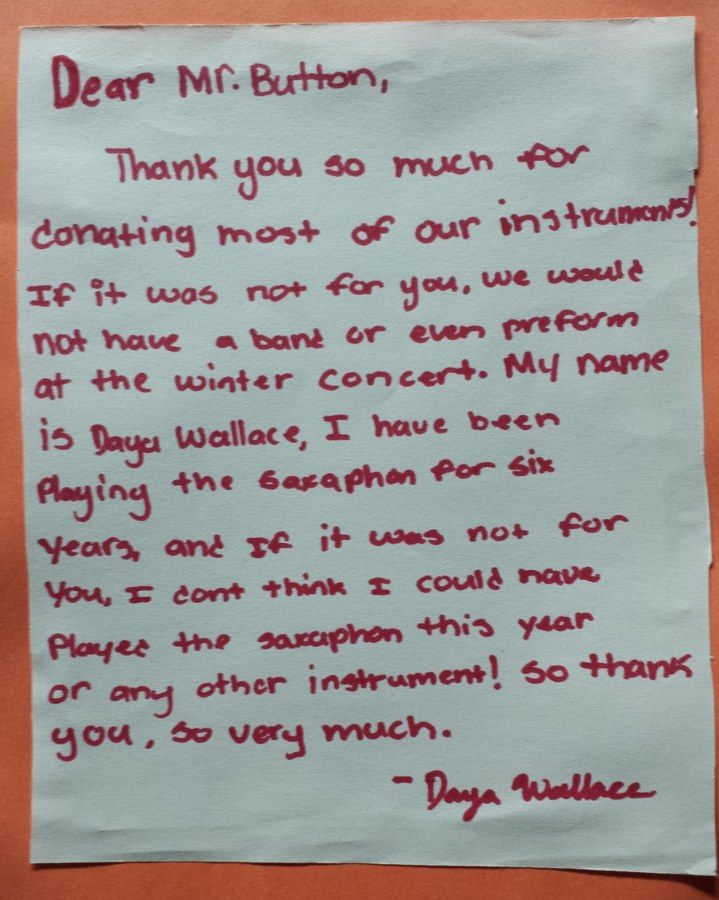 Dear Mr. Button,
Thank you so much for
donating most of our instruments!
If it was not for you, we would
not have a band or even preform
at the winter concert. My name
is Daya Wallace, I have been
Playing the saxaphon for six
years, and If it was not for
you, I dont think I could have
Played the saxaphon this year
or any other instrument! so thank
you, so very much.
- Daya Wallace